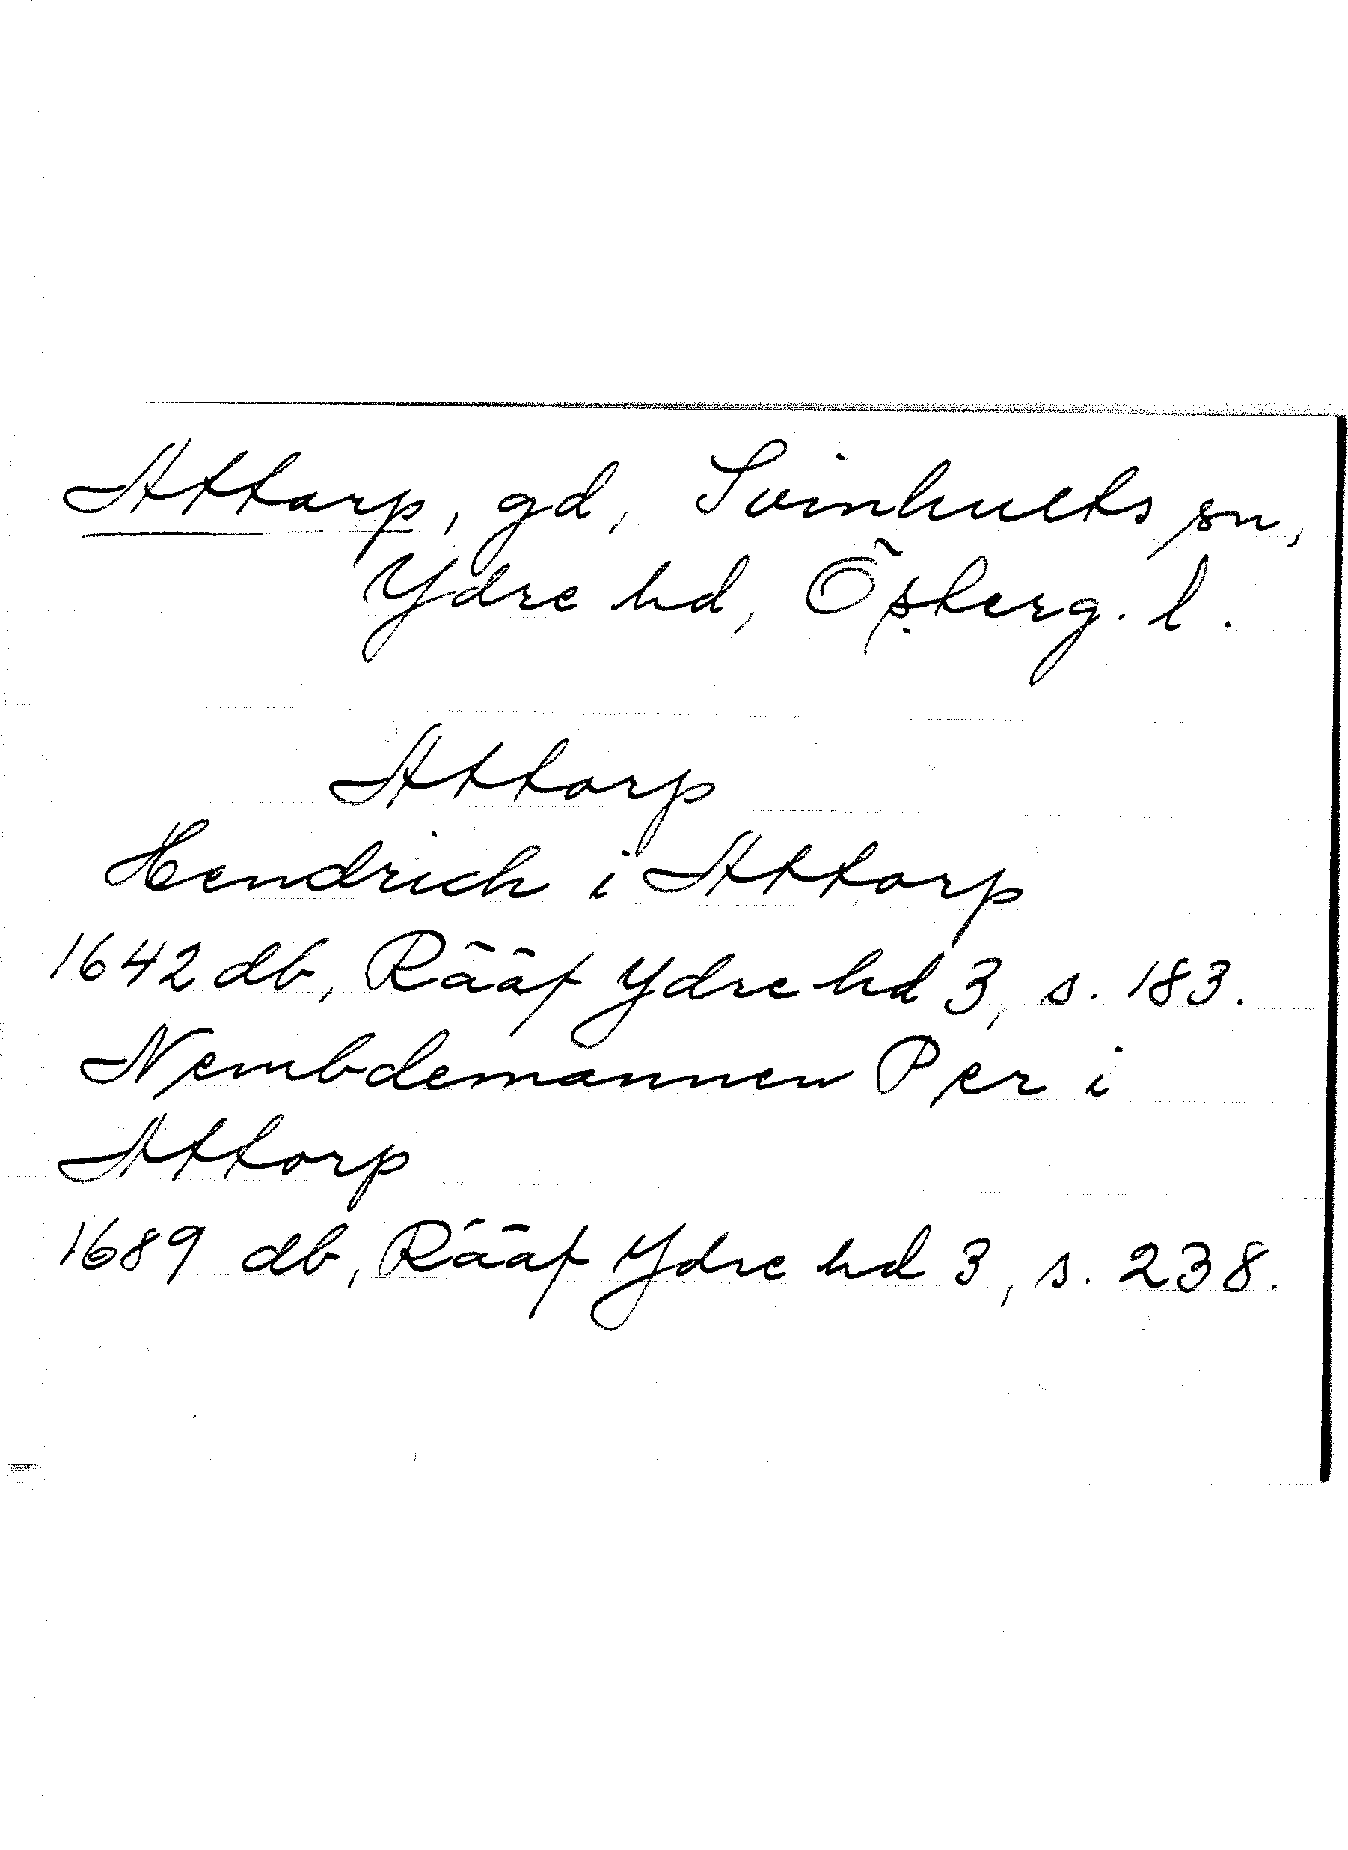 Attarp, gd, Svinhults sn,
Ydre hd, Österg. l.
Attorp
Hendrich i Attorp
1642 db, Rääf Ydre hd 3, s. 183.
Nembdemannen Per i
Attorp
1689 db, Rääf Ydre hd 3, s. 238.